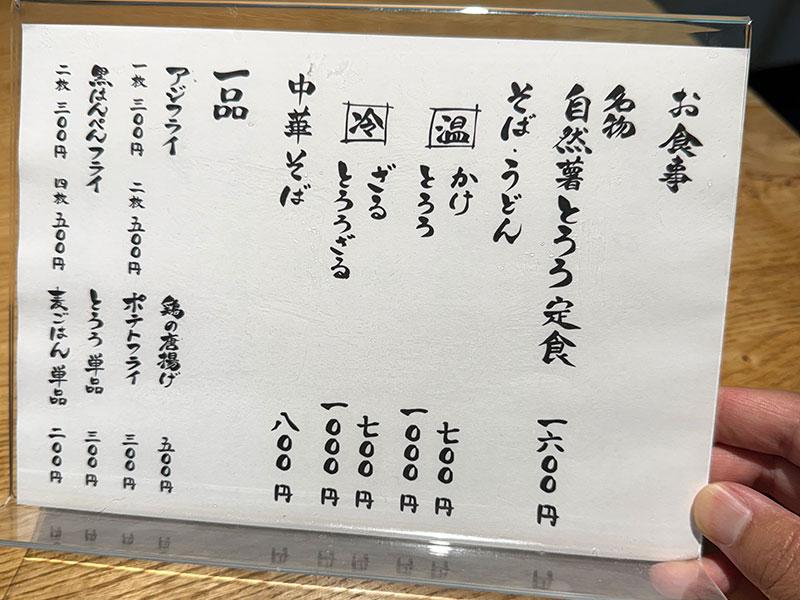 お食事
名物
自然薯とろろ定食 一六〇〇円
そば・うどん
温 かけ 七〇〇円
とろろ 一〇〇〇円
冷 ざる 七〇〇円
とろろざる 一〇〇〇円
中華そば 八〇〇円
一品
アジフライ
一枚 三〇〇円 二枚 五〇〇円
黒はんぺんフライ
二枚 三〇〇円 四枚 五〇〇円
鶏の唐揚げ 五〇〇円
ポテトフライ 三〇〇円
とろろ単品 三〇〇円
麦ごはん単品 二〇〇円